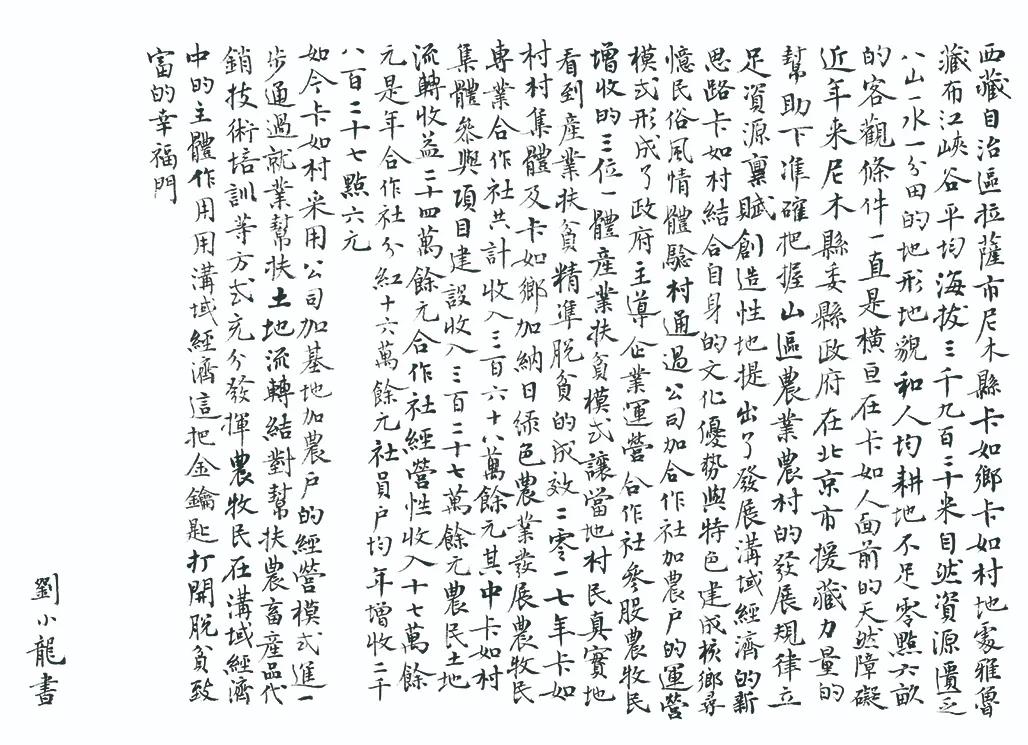 西藏自治區拉薩市尼木縣卡如鄉卡如村地處雅魯
藏布江峽谷平均海拔三千九百二十米自然資源匱乏
八山一水一分田的地形地貌和人均耕地不足零點六畝
的客觀條件一直是橫亘在卡如人面前的天然障礙
近年来尼木縣委縣政府在北京市援藏力量的
幫助下准確把握山區農業農村的發展規律立
足資源稟賦創造性地提出了發展溝域經濟的新
思路卡如村結合自身的文化優勢與特色建成核鄉尋
憶民俗風情體驗村通過公司加合作社加農户的運營
模式形成了政府主導企業運營合作社參股農牧民
增收的三位一體產業扶貧模式讓當地村民真實地
看到產業扶貧精準脱貧的成效二零一七年卡如
村村集體及卡如鄉加納日绿色農業發展農牧民
專業合作社共計收入三百六十八萬餘元其中卡如村
集體參與項目建設收入三百二十七萬餘元農民土地
流轉收益二十四萬餘元合作社經營性收入十七萬餘
元是年合作社分紅十六萬餘元社員户均年增收二千
八百二十七點六元
如今卡如村采用公司加基地加農户的經營模式進一
步通過就業幫扶土地流轉結對幫扶農畜產品代
銷技術培訓等方式充分發揮農牧民在溝域經濟
中的主體作用用溝域經濟這把金鑰匙打開脱貧致
富的幸福門
劉小龍書